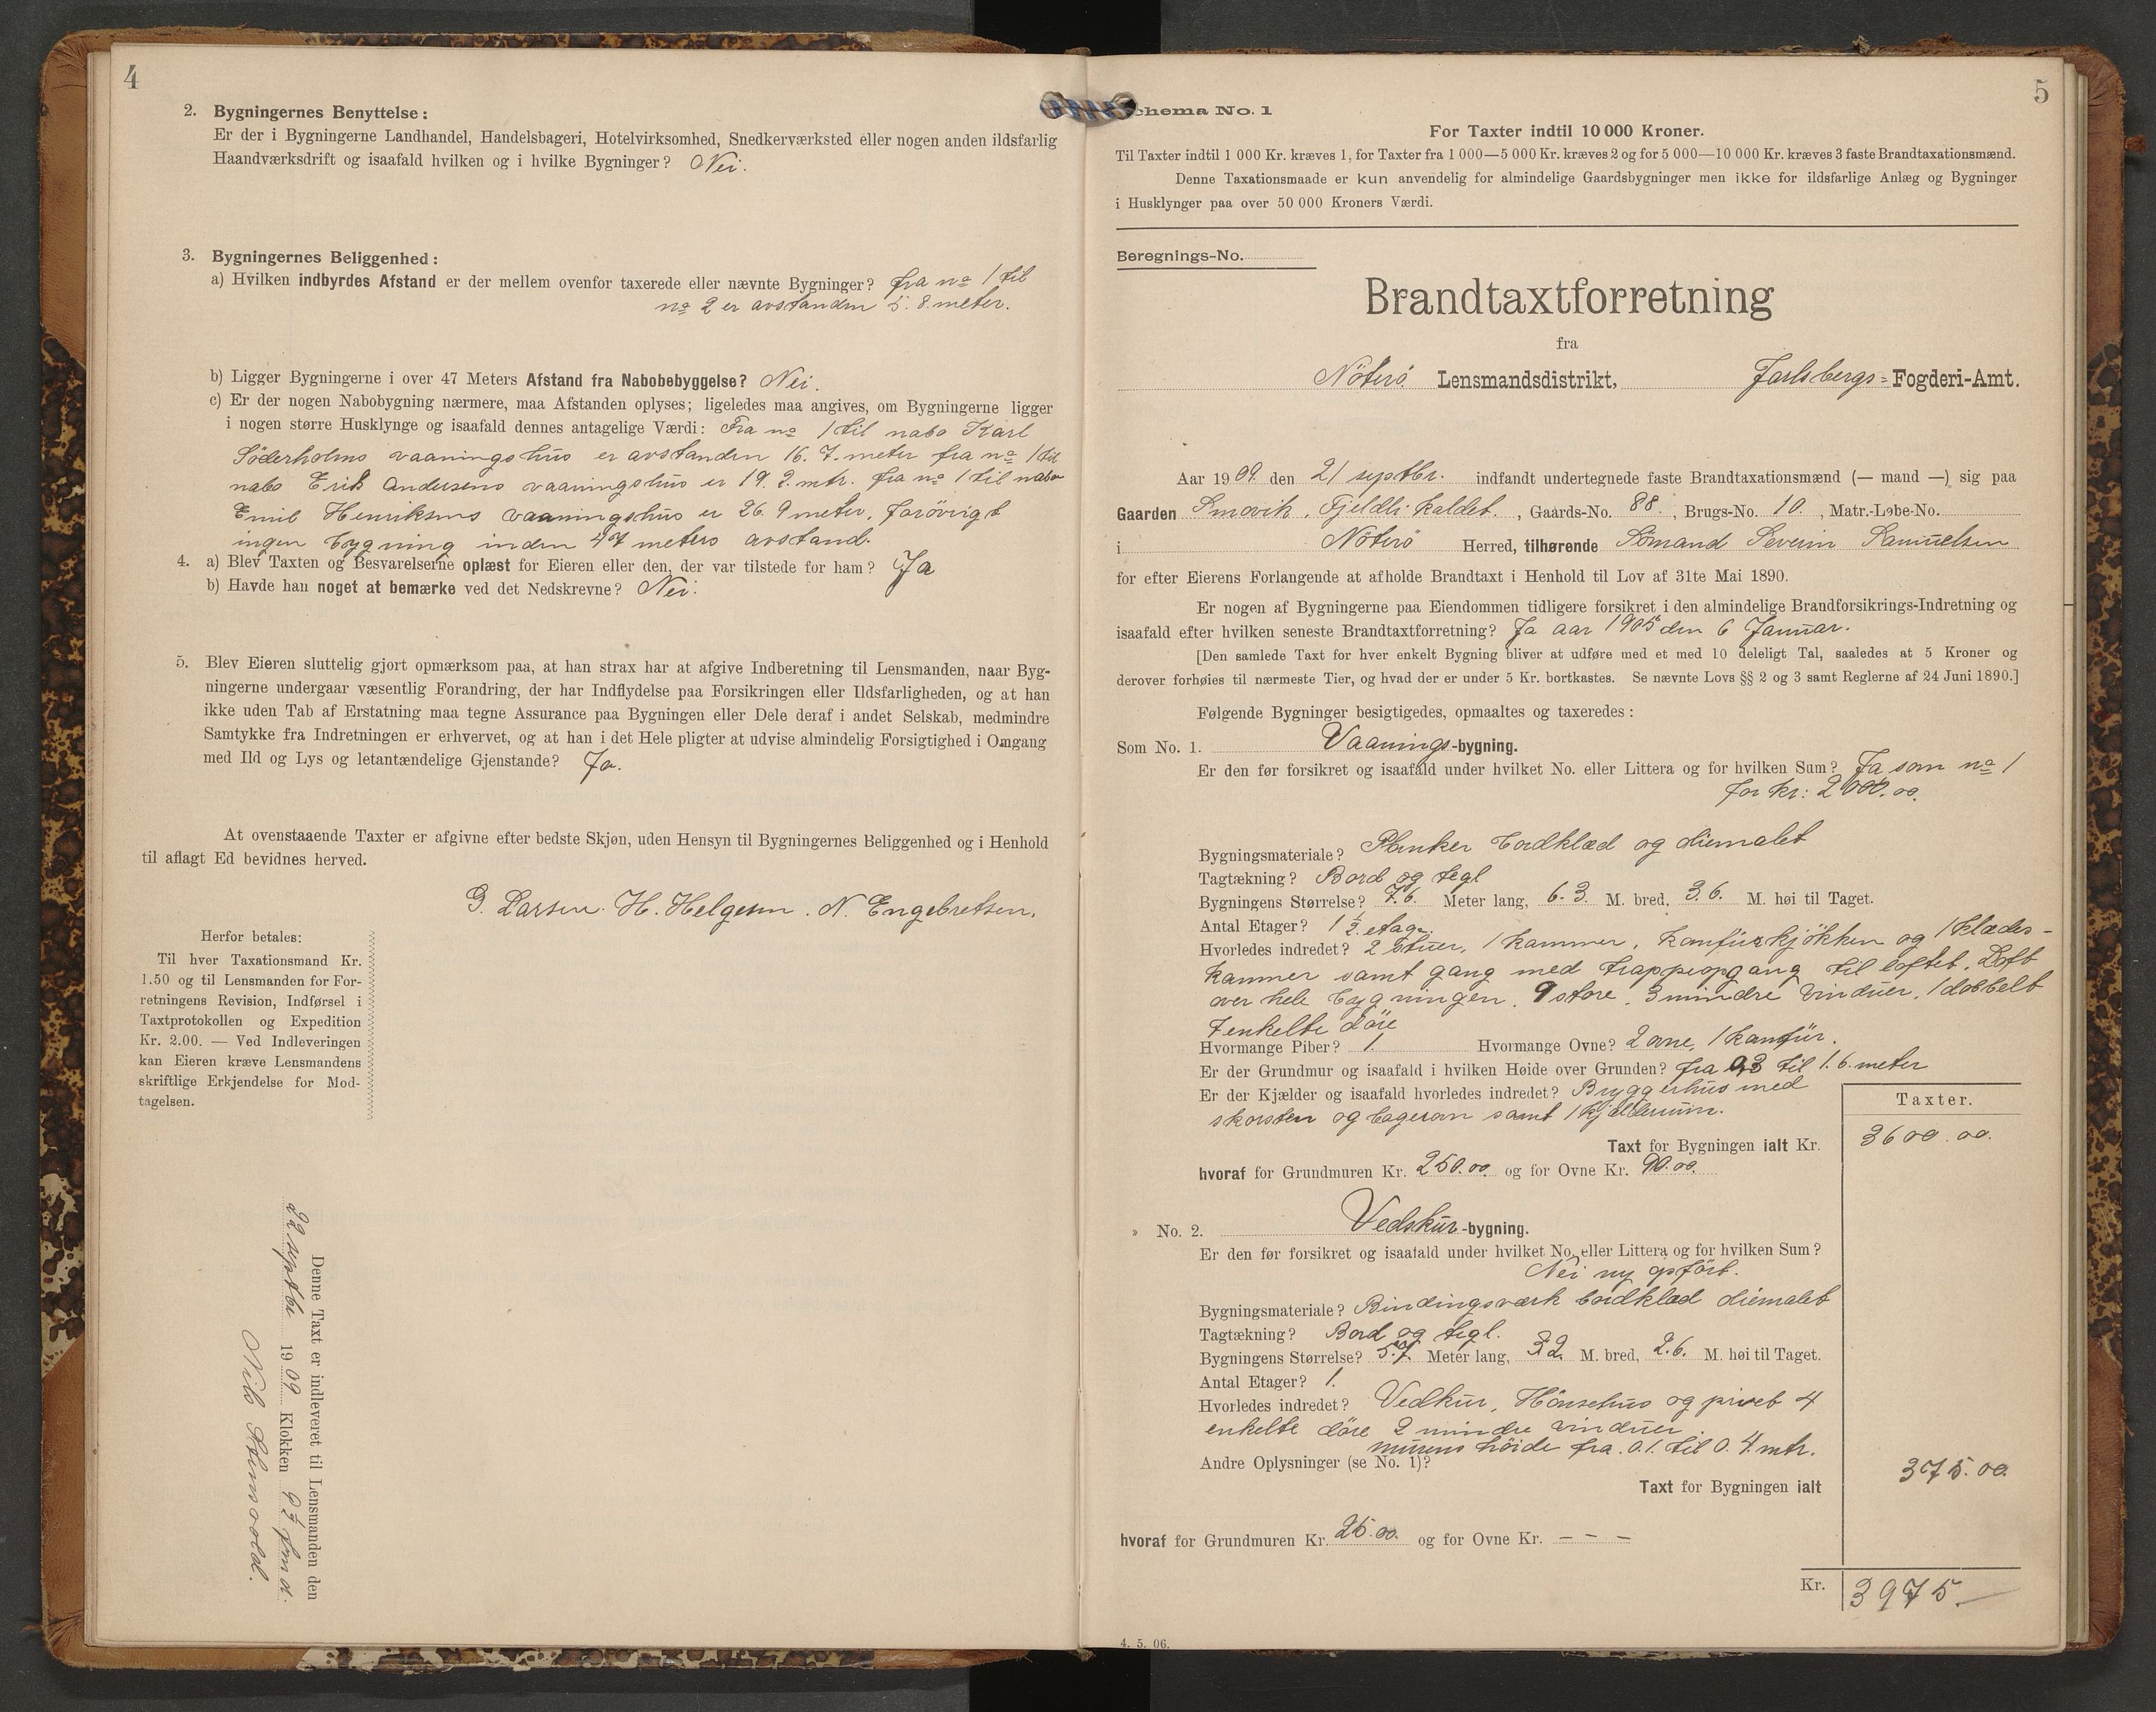 4
2. Bygningernes Benyttelse:
Er der i Bygningerne Landhandel, Handelsbageri, Hotelvirksomhed, Snedkerværksted eller nogen anden ildsfarlig
Haandværksdrift og isaafald hvilken og i hvilke Bygninger? Nei.
3. Bygningernes Beliggenhed:
a) Hvilken indbyrdes Afstand er der mellem ovenfor taxerede eller nævnte Bygninger? fra no 1 til
no 2 er avstanden 5.8. meter.
b) Ligger Bygningerne i over 47 Meters Afstand fra Nabobebyggelse? Nei.
c) Er der nogen Nabobygning nærmere, maa Afstanden oplyses; ligeledes maa angives, om Bygningerne ligger
i nogen større Husklynge og isaafald dennes antagelige Værdi: Fra no 1 til nabo Karl
Söderholms vaaningshus er avstanden 16.7. meter fra no 1 til
nabo Erik Andersens vaaningshus er 19.2. mtr. fra no 1 til nabo
Emil Henriksens vaaningshus er 26.9 meter, forövrigt
ingen bygning inden 47 meters avstand.
4. a) Blev Taxten og Besvarelserne oplæst for Eieren eller den, der var tilstede for ham? Ja
b) Havde han noget at bemærke ved det Nedskrevne? Nei.
5. Blev Eieren sluttelig gjort opmærksom paa, at han strax har at afgive Indberetning til Lensmanden, naar Byg-
ningerne undergaar væsentlig Forandring, der har Indflydelse paa Forsikringen eller Ildsfarligheden, og at han
ikke uden Tab af Erstatning maa tegne Assurance paa Bygningen eller Dele deraf i andet Selskab, medmindre
Samtykke fra Indretningen er erhvervet, og at han i det Hele pligter at udvise almindelig Forsigtighed i Omgang
med Ild og Lys og letantændelige Gjenstande? Ja.
At ovenstaaende Taxter er afgivne efter bedste Skjøn, uden Hensyn til Bygningernes Beliggenhed og i Henhold
til aflagt Ed bevidnes herved.
G. Larsen. H. Helgesen. N. Engebretsen.
Herfor betales:
Til hver Taxationsmand Kr.
1.50 og til Lensmanden for For-
retningens Revision, Indførsel i
Taxtprotokollen og Expedition
Kr. 2.00. — Ved Indleveringen
kan Eieren kræve Lensmandens
skriftlige Erkjendelse for Mod-
tagelsen.
Denne Taxt er indleveret til Lensmanden den
22 septbr 1909 Klokken 9½ fmd.
Nils
5
Schema No. 1
For Taxter indtil 10 000 Kroner.
Til Taxter indtil 1 000 Kr. kræves 1, for Taxter fra 1 000—5 000 Kr. kræves 2 og for 5 000—10 000 Kr. kræves 3 faste Brandtaxationsmænd.
Denne Taxationsmaade er kun anvendelig for almindelige Gaardsbygninger men ikke for ildsfarlige Anlæg og Bygninger
i Husklynger paa over 50 000 Kroners Værdi.
Beregnings-No.
Brandtaxtforretning
fra
Nöterö Lensmandsdistrikt, Jarlsbergs-Fogderi-Amt.
Aar 1909. den 21 septbr. indfandt undertegnede faste Brandtaxationsmænd (— mand —) sig paa
Gaarden Smovik, Fjeldli kaldet., Gaards-No. 88., Brugs-No. 10., Matr.-Løbe-No.
i Nöterö Herred, tilhørende Sömand Severin Samuelsen
for efter Eierens Forlangende at afholde Brandtaxt i Henhold til Lov af 31te Mai 1890.
Er nogen af Bygningerne paa Eiendommen tidligere forsikret i den almindelige Brandforsikrings-Indretning og
isaafald efter hvilken seneste Brandtaxtforretning? Ja aar 1905 den 6 Januar.
[Den samlede Taxt for hver enkelt Bygning bliver at udføre med et med 10 deleligt Tal, saaledes at 5 Kroner og
derover forhøies til nærmeste Tier, og hvad der er under 5 Kr. bortkastes. Se nævnte Lovs §§ 2 og 3 samt Reglerne af 24 Juni 1890.]
Følgende Bygninger besigtigedes, opmaaltes og taxeredes:
Som No. 1. Vaanings-bygning.
Er den før forsikret og isaafald under hvilket No. eller Littera og for hvilken Sum? Ja som no 1
for kr: 2000.00.
Bygningsmateriale? Planker bordklæd og oliemalet
Tagtækning? Bord og tegl
Bygningens Størrelse? 7.6. Meter lang, 6.3. M. bred, 3.6. M. høi til Taget.
Antal Etager? 1½ etage.
Hvorledes indredet? 2 stuer, 1 kammer, komfürkjökken og 1 klædes-
kammer samt gang med trappeopgang til loftet. Loft
over hele bygningen. 9 store. 3 mindre vinduer. 1 dobbelt
7 enkelte döre
Hvormange Piber? 1. Hvormange Ovne? 2 ovne, 1 komfür.
Er der Grundmur og isaafald i hvilken Høide over Grunden? fra 0,3 til 1.6. meter
Er der Kjælder og isaafald hvorledes indredet? Bryggerhus med
skorsten og bagerovn samt 1 kjelderrum.
Taxter.
Taxt for Bygningen ialt Kr. 3600.00.
hvoraf for Grundmuren Kr. 250.00 og for Ovne Kr. 90.00.
» No. 2. Vedskur-bygning.
Er den før forsikret og isaafald under hvilket No. eller Littera og for hvilken Sum?
Nei ny opfört.
Bygningsmateriale? Bindingsværk bordklæd oliemalet
Tagtækning? Bord og tegl.
Bygningens Størrelse? 5.7. Meter lang, 3.2. M. bred, 2.6. M. høi til Taget.
Antal Etager? 1.
Hvorledes indredet? Vedkur, Hönsehus og privet 4
enkelte döre 2 mindre vinduer.
murens höide fra. 0.1. til 0.4. mtr.
Andre Oplysninger (se No. 1)?
Taxt for Bygningen ialt 375.00.
hvoraf for Grundmuren Kr. 25.00. og for Ovne Kr. – – –
Kr. 3975 —
4. 5. 06.